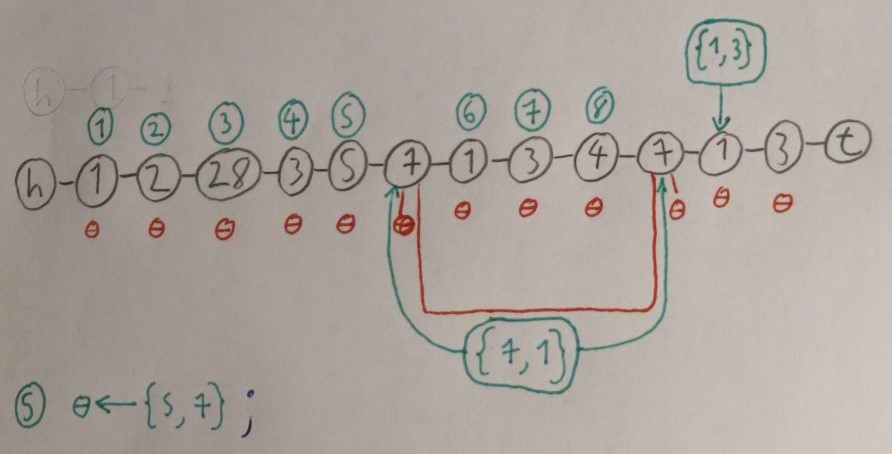 {1,3}
h 1
1 2 3 4 5 6 7 8
h 1 2 28 3 5 7 1 3 4 7 1 3 t
θ θ θ θ θ θ θ θ θ θ θ θ
{7,1}
5 θ ← {5,7} ;